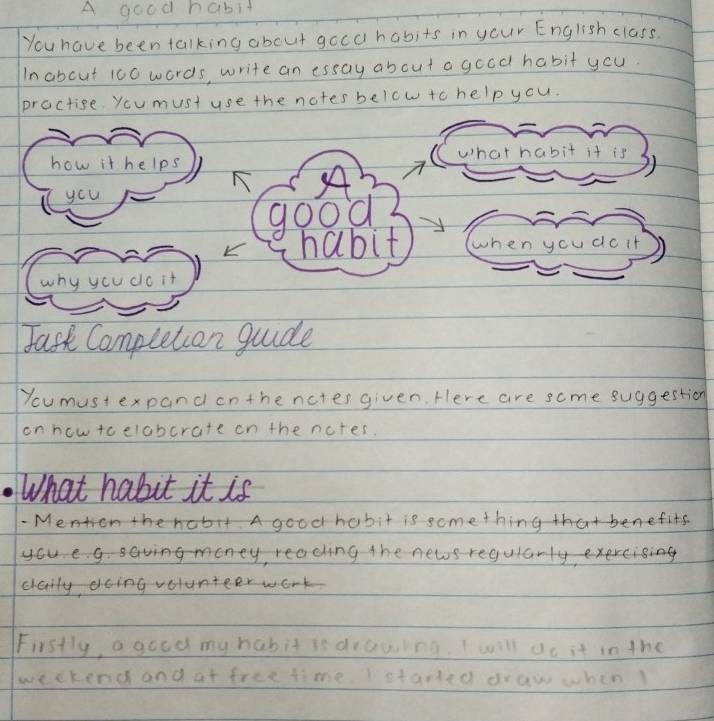 A good habit
You have been talking about good habits in your English class.
In about 100 words, write an essay about a good habit you
practise. You must use the notes below to help you.
how it helps
you
what habit it is
A
good
habit
why you do it
when you do it
Task Completion guide
You must expand on the notes given. Here are some suggestion
on how to elaborate on the notes.
• What habit it is
- Mention the habit. A good habit is something that benefits
you e.g. saving money, reading the news regularly, exercising
daily, doing volunteer work.
Firstly, a good my habit is drawing. I will do it in the
weekend and at free time. I started draw when I